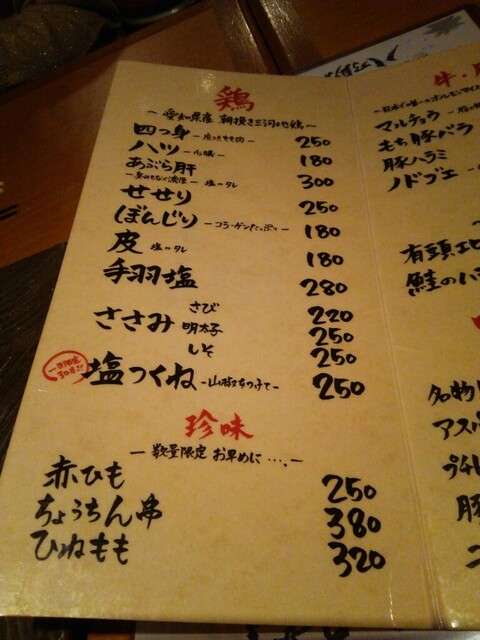 鶏
〜愛知県産 朝挽き三河地鶏〜
四つ身 -皮つきもも肉- 250
ハツ -心臓- 180
あぶら肝 300
塩 or タレ
せせり 250
ぼんじり -コラーゲンたっぷり- 180
皮 塩 or タレ 180
手羽塩 280
ささみ さび 220
明太子 250
しそ 250
塩つくね -山椒をつけて- 250
珍味
- 数量限定 お早めに・・・ -
赤ひも 250
ちょうちん串 380
ひねもも 320
牛・
マルチョウ
もち豚バラ
豚ハラミ
ノドブエ
有頭エビ
鮭のハ
名物
アスパ
豚